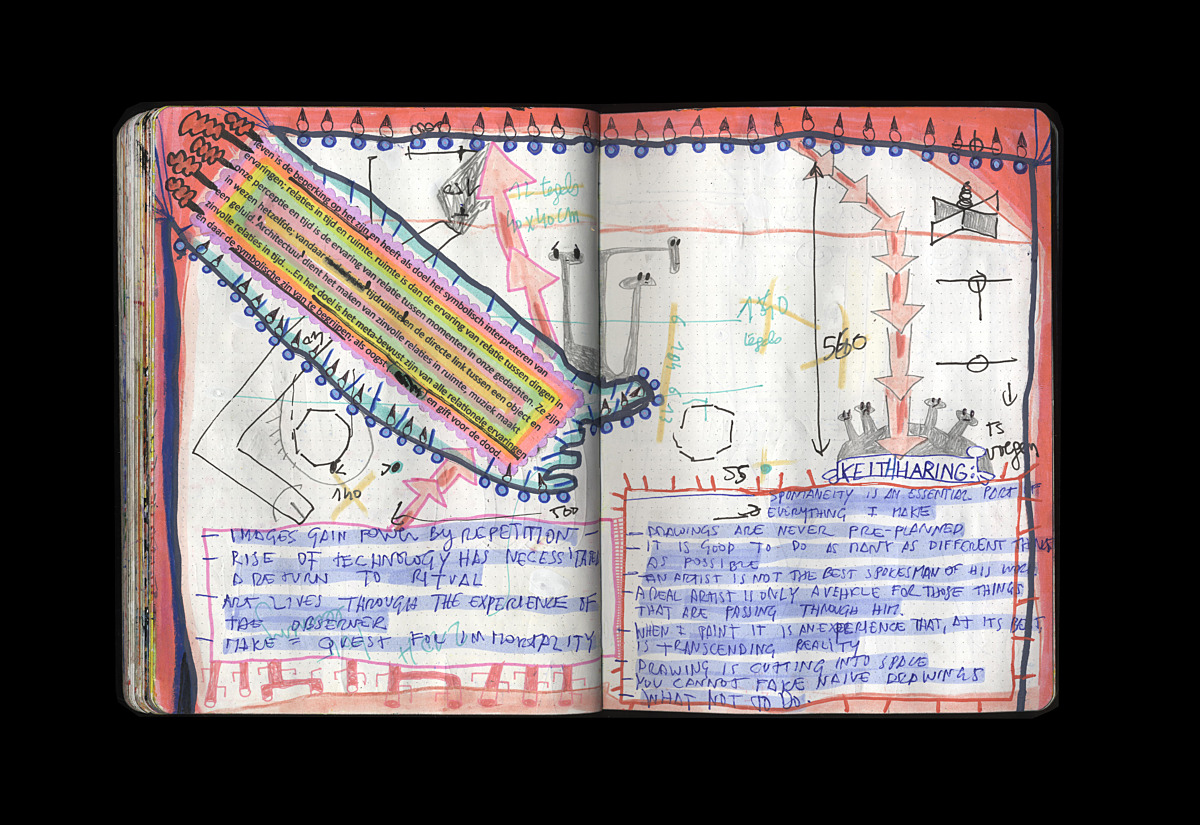 leven is de beperking op het zijn en heeft als doel het symbolisch interpreteren van
ervaringen; relaties in tijd en ruimte. ruimte is dan de ervaring van relatie tussen dingen in
onze perceptie en tijd is de ervaring van relatie tussen momenten in onze gedachten. Ze zijn
in wezen hetzelfde: vandaar tijdruimte en de directe link tussen een object en
een geluid. Architectuur dient het maken van zinvolle relaties in ruimte, muziek maakt
zinvolle relaties in tijd. ...En het doel is het meta-bewust zijn van alle relationele ervaringen
en daar de symbolische zin van te begrijpen: als oogst en gift voor de dood.
12 tegels
10x40cm
140
560
- IMAGES GAIN POWER BY REPETITION -
- RISE OF TECHNOLOGY HAS NECESSITATED
A RETURN TO RITUAL
- ART LIVES THROUGH THE EXPERIENCE OF
THE OBSERVER
- MAKE A QUEST FOR IMMORTALITY
150
tegels
560
55
KEITH HARING:
SPONTANEITY IS AN ESSENTIAL PART OF
EVERYTHING I MAKE
- DRAWINGS ARE NEVER PRE-PLANNED
- IT IS GOOD TO DO AS MANY AS DIFFERENT THINGS
AS POSSIBLE
- AN ARTIST IS NOT THE BEST SPOKESMAN OF HIS WORK
- A REAL ARTIST IS ONLY A VEHICLE FOR THOSE THINGS
THAT ARE PASSING THROUGH HIM.
- WHEN I PAINT IT IS AN EXPERIENCE THAT, AT ITS BEST,
IS TRANSCENDING REALITY
- DRAWING IS CUTTING INTO SPACE
- YOU CANNOT FAKE NAIVE DRAWINGS
- WHAT NOT TO DO.